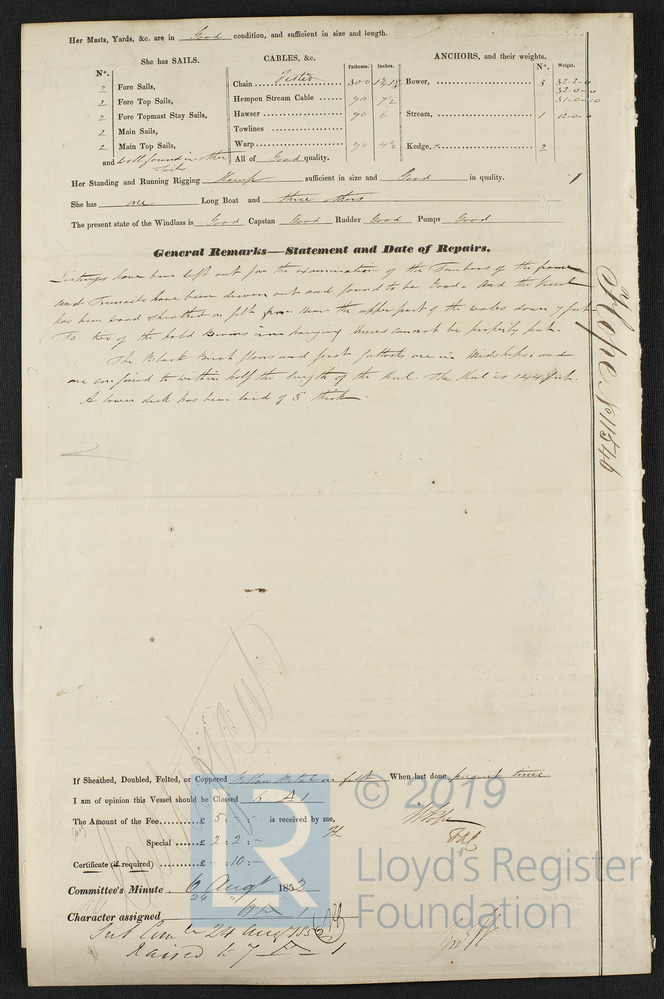 Her Masts, Yards, &c. are in Good condition, and sufficient in size and length.
She has SAILS. CABLES, &c. ANCHORS, and their weights.
N°. Fathoms. Inches. N°. Weight.
2 Fore Sails, Chain Tested 300 Bower, 3 32-2-0
2 Fore Top Sails, Hempen Stream Cable 90 7½ 32-0-0
31-0-10
2 Fore Topmast Stay Sails, Hawser 90 6 Stream, 1 12-0-0
2 Main Sails, Towlines
2 Main Top Sails, Warp 90 4½ Kedge, 2
and well found in other Sails All of Good quality.
Her Standing and Running Rigging Hemp sufficient in size and Good in quality.
She has one Long Boat and three others
The present state of the Windlass is Good Capstan Good Rudder Good Pumps Good
General Remarks—Statement and Date of Repairs.
have been left out for the examination of the Timbers of the frame
and Treenails have been driven out and found to be Good. and the Vessel
has been wood sheathed on felt from near the upper part of the wales down 7 feet
To two of the hold Beams iron hanging knees cannot be properly put.
The Black Birch floors and first futtocks are in Midships, and
are confined to within half the length of the Keel. The Keel is 144 feet.
A lower deck has been laid of 3 thick.
Hope No 11546
If Sheathed, Doubled, Felted, or Coppered Yellow Metal on felt When last done present time
I am of opinion this Vessel should be Classed 6 A 1
The Amount of the Fee......£ 5 : - : - is received by me,
Special ......£ 2 : 2 : -
Certificate (if required) ......£ - : 10 : -
Committee's Minute 6 Augt 1852
Character assigned
24 Aug 1852
Raised to 7 A 1
© 2019
LR
Lloyd's Register
Foundation